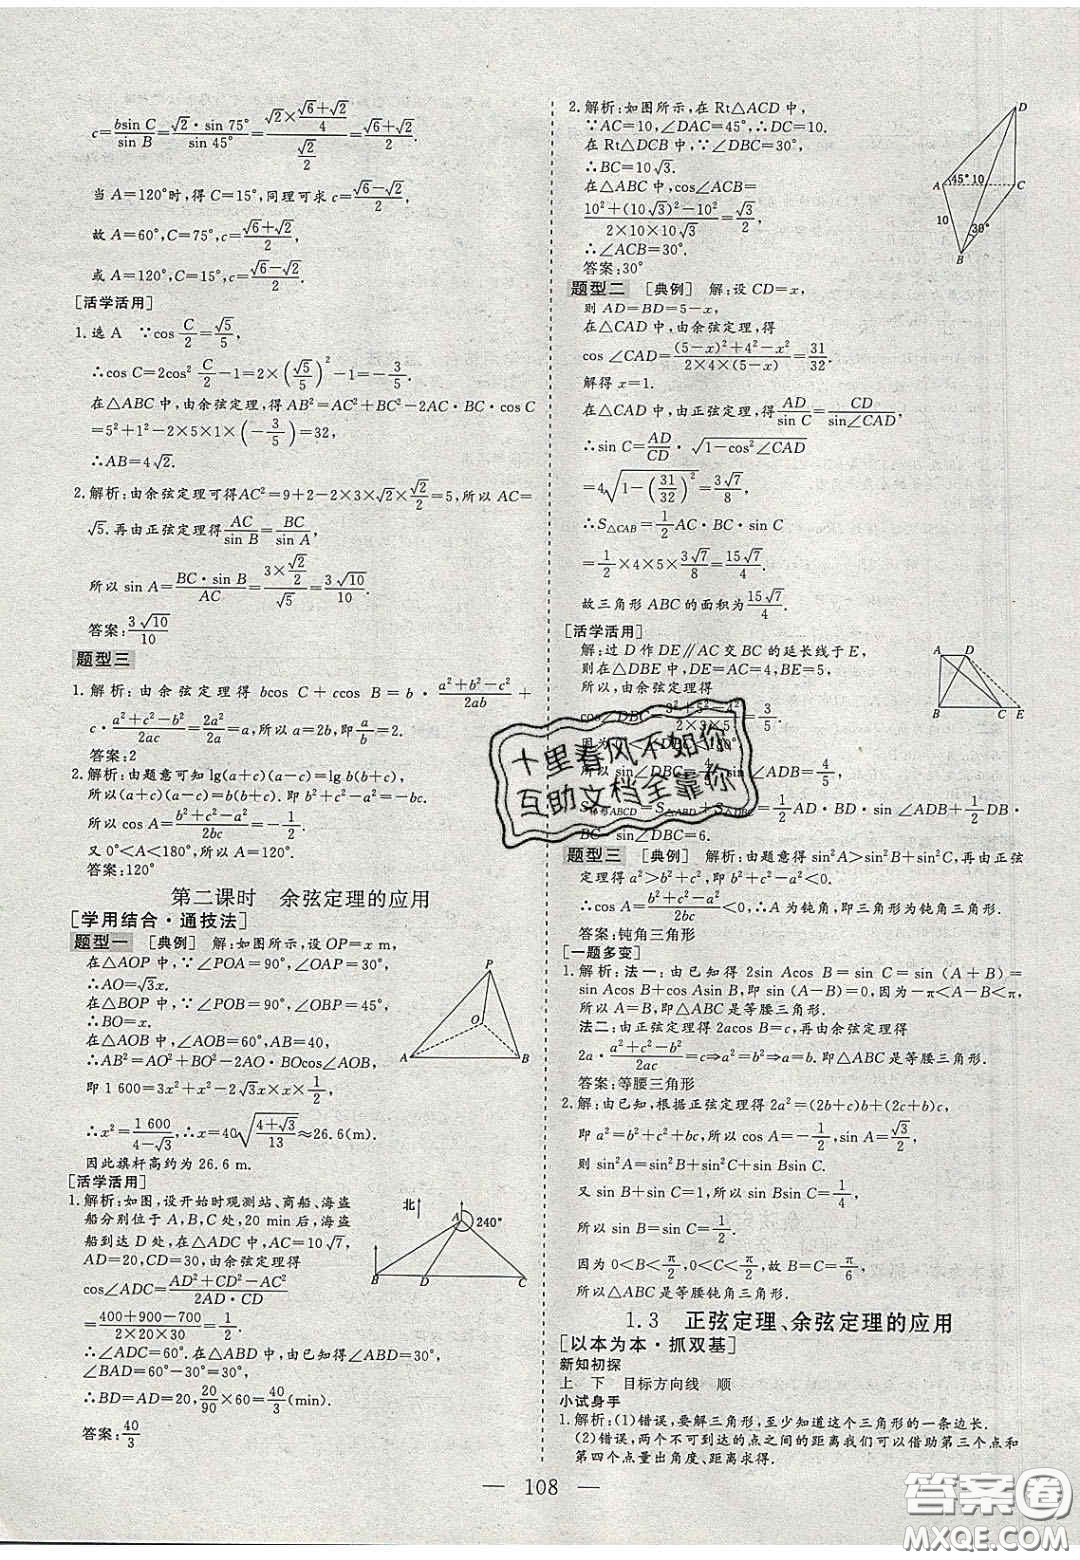 c=\frac{bsin C}{sin B}=\frac{√2·sin 75°}{sin 45°}=\frac{√2×\frac{√6+√2}{4}}{\frac{√2}{2}}=\frac{√6+√2}{2}.
当 A=120°时,得 C=15°,同理可求 c=\frac{√6-√2}{2},
故 A=60°,C=75°,c=\frac{√6+√2}{2},
或 A=120°,C=15°,c=\frac{√6-√2}{2}.
[活学活用]
1.选 A ∵cos \frac{C}{2}=\frac{√5}{5},
∴cos C=2cos² \frac{C}{2}-1=2×(\frac{√5}{5})²-1=-\frac{3}{5}.
在△ABC 中,由余弦定理,得 AB²=AC²+BC²-2AC·BC·cos C
=5²+1²-2×5×1×(-\frac{3}{5})=32,
∴AB=4√2.
2.解析:由余弦定理可得AC²=9+2-2×3×√2×\frac{√2}{2}=5,所以 AC=
√5.再由正弦定理得\frac{AC}{sin B}=\frac{BC}{sin A},
所以 sin A=\frac{BC·sin B}{AC}=\frac{3×\frac{√2}{2}}{√5}=\frac{3√10}{10}.
答案:\frac{3√10}{10}
题型三
1.解析:由余弦定理得 bcos C+ccos B=b·\frac{a²+b²-c²}{2ab}+
c·\frac{a²+c²-b²}{2ac}=\frac{2a²}{2a}=a,所以 a=2b,即\frac{a}{b}=2.
答案:2
2.解析:由题意可知 lg(a+c)(a-c)=lg b(b+c),
所以(a+c)(a-c)=b(b+c).即 b²+c²-a²=-bc.
所以 cos A=\frac{b²+c²-a²}{2bc}=-\frac{1}{2}.
又 0°<A<180°,所以 A=120°.
答案:120°
第二课时 余弦定理的应用
[学用结合·通技法]
题型一 [典例] 解:如图所示,设 OP=x m,
在△AOP 中,∵∠POA=90°,∠OAP=30°,
∴AO=√3x.
在△BOP 中,∵∠POB=90°,∠OBP=45°,
∴BO=x.
在△AOB 中,∠AOB=60°,AB=40,
∴AB²=AO²+BO²-2AO·BOcos∠AOB,
即 1 600=3x²+x²-2√3 x×x×\frac{1}{2},
∴x²=\frac{1 600}{4-√3},∴x=40\sqrt{\frac{4+√3}{13}}≈26.6(m).
因此旗杆高约为 26.6 m.
P
O
A
B
[活学活用]
1.解析:如图,设开始时观测站、商船、海盗
船分别位于 A,B,C 处,20 min 后,海盗
船到达 D 处,在△ADC 中,AC=10√7,
AD=20,CD=30,由余弦定理得
cos∠ADC=\frac{AD²+CD²-AC²}{2AD·CD}
=\frac{400+900-700}{2×20×30}=\frac{1}{2}.
∴∠ADC=60°.在△ABD 中,由已知得∠ABD=30°,
∠BAD=60°-30°=30°,
∴BD=AD=20,\frac{20}{90}×60=\frac{40}{3}(min).
答案:\frac{40}{3}
北
A
240°
B
D
C
2.解析:如图所示,在 Rt△ACD 中,
∵AC=10,∠DAC=45°,∴DC=10.
在 Rt△DCB 中,∵∠DBC=30°,
∴BC=10√3.
在△ABC 中,cos∠ACB=
\frac{10²+(10√3)²-10²}{2×10×10√3}=\frac{√3}{2},
∴∠ACB=30°.
答案:30°
D
A
45°
10
C
10
30°
B
题型二 [典例] 解:设 CD=x,
则 AD=BD=5-x,
在△CAD 中,由余弦定理,得
cos ∠CAD=\frac{(5-x)²+4²-x²}{2×4×(5-x)}=\frac{31}{32}
解得 x=1.
在△CAD 中,由正弦定理,得\frac{AD}{sin C}=\frac{CD}{sin∠CAD},
∴sin C=\frac{AD}{CD}·\sqrt{1-cos²∠CAD}
=4\sqrt{1-(\frac{31}{32})²}=\frac{3√7}{8},
∴S△CAB=\frac{1}{2}AC·BC·sin C
=\frac{1}{2}×4×5×\frac{3√7}{8}=\frac{15√7}{4}.
故三角形 ABC 的面积为\frac{15√7}{4}.
[活学活用]
解:过 D 作 DE∥AC 交 BC 的延长线于 E,
则在△DBE 中,DE=AC=4,BE=5,
所以,由余弦定理得
cos∠DBC=\frac{3²+5²-4²}{2×3×5}=\frac{3}{5}.
因为 0°<∠DBC<180°
所以 sin∠DBC=\frac{4}{5},sin ∠ADB=\frac{4}{5},
S梯形ABCD=S△ABD+S△DBC=\frac{1}{2}AD·BD·sin ∠ADB+\frac{1}{2}DB·
BC·sin∠DBC=6.
A
D
B
C
E
题型三 [典例] 解析:由题意得 sin²A>sin²B+sin²C,再由正弦
定理得 a²>b²+c²,即 b²+c²-a²<0.
∴cos A=\frac{b²+c²-a²}{2bc}<0,∴A 为钝角,即三角形为钝角三角形.
答案:钝角三角形
[一题多变]
1.解析:法一:由已知得 2sin Acos B=sin C=sin (A+B)=
sin Acos B+cos Asin B,即 sin (A-B)=0,因为-π<A-B<π,
所以 A=B,即△ABC 是等腰三角形.
法二:由正弦定理得 2acos B=c,再由余弦定理得
2a·\frac{a²+c²-b²}{2ac}=c⇒a²=b²⇒a=b.即△ABC 是等腰三角形.
答案:等腰三角形
2.解:由已知,根据正弦定理得 2a²=(2b+c)b+(2c+b)c,
即 a²=b²+c²+bc,所以 cos A=-\frac{1}{2},sin A=\frac{√3}{2},
则 sin²A=sin²B+sin²C+sin Bsin C.
又 sin B+sin C=1,所以 sin Bsin C=\frac{1}{4},
所以 sin B=sin C=\frac{1}{2}.
因为 0<B<\frac{π}{2},0<C<\frac{π}{2},故 B=C=\frac{π}{6},
所以△ABC 是等腰钝角三角形.
1.3 正弦定理、余弦定理的应用
[以本为本·抓双基]
新知初探
上 下 目标方向线 顺
小试身手
1.解析:(1)错误,要解三角形,至少知道这个三角形的一条边长.
(2)错误,两个不可到达的点之间的距离我们可以借助第三个点和
第四个点量出角度、距离求得.
十里春风不如你
互助文档全靠你
— 108 —
答案圈
MXQE.COM